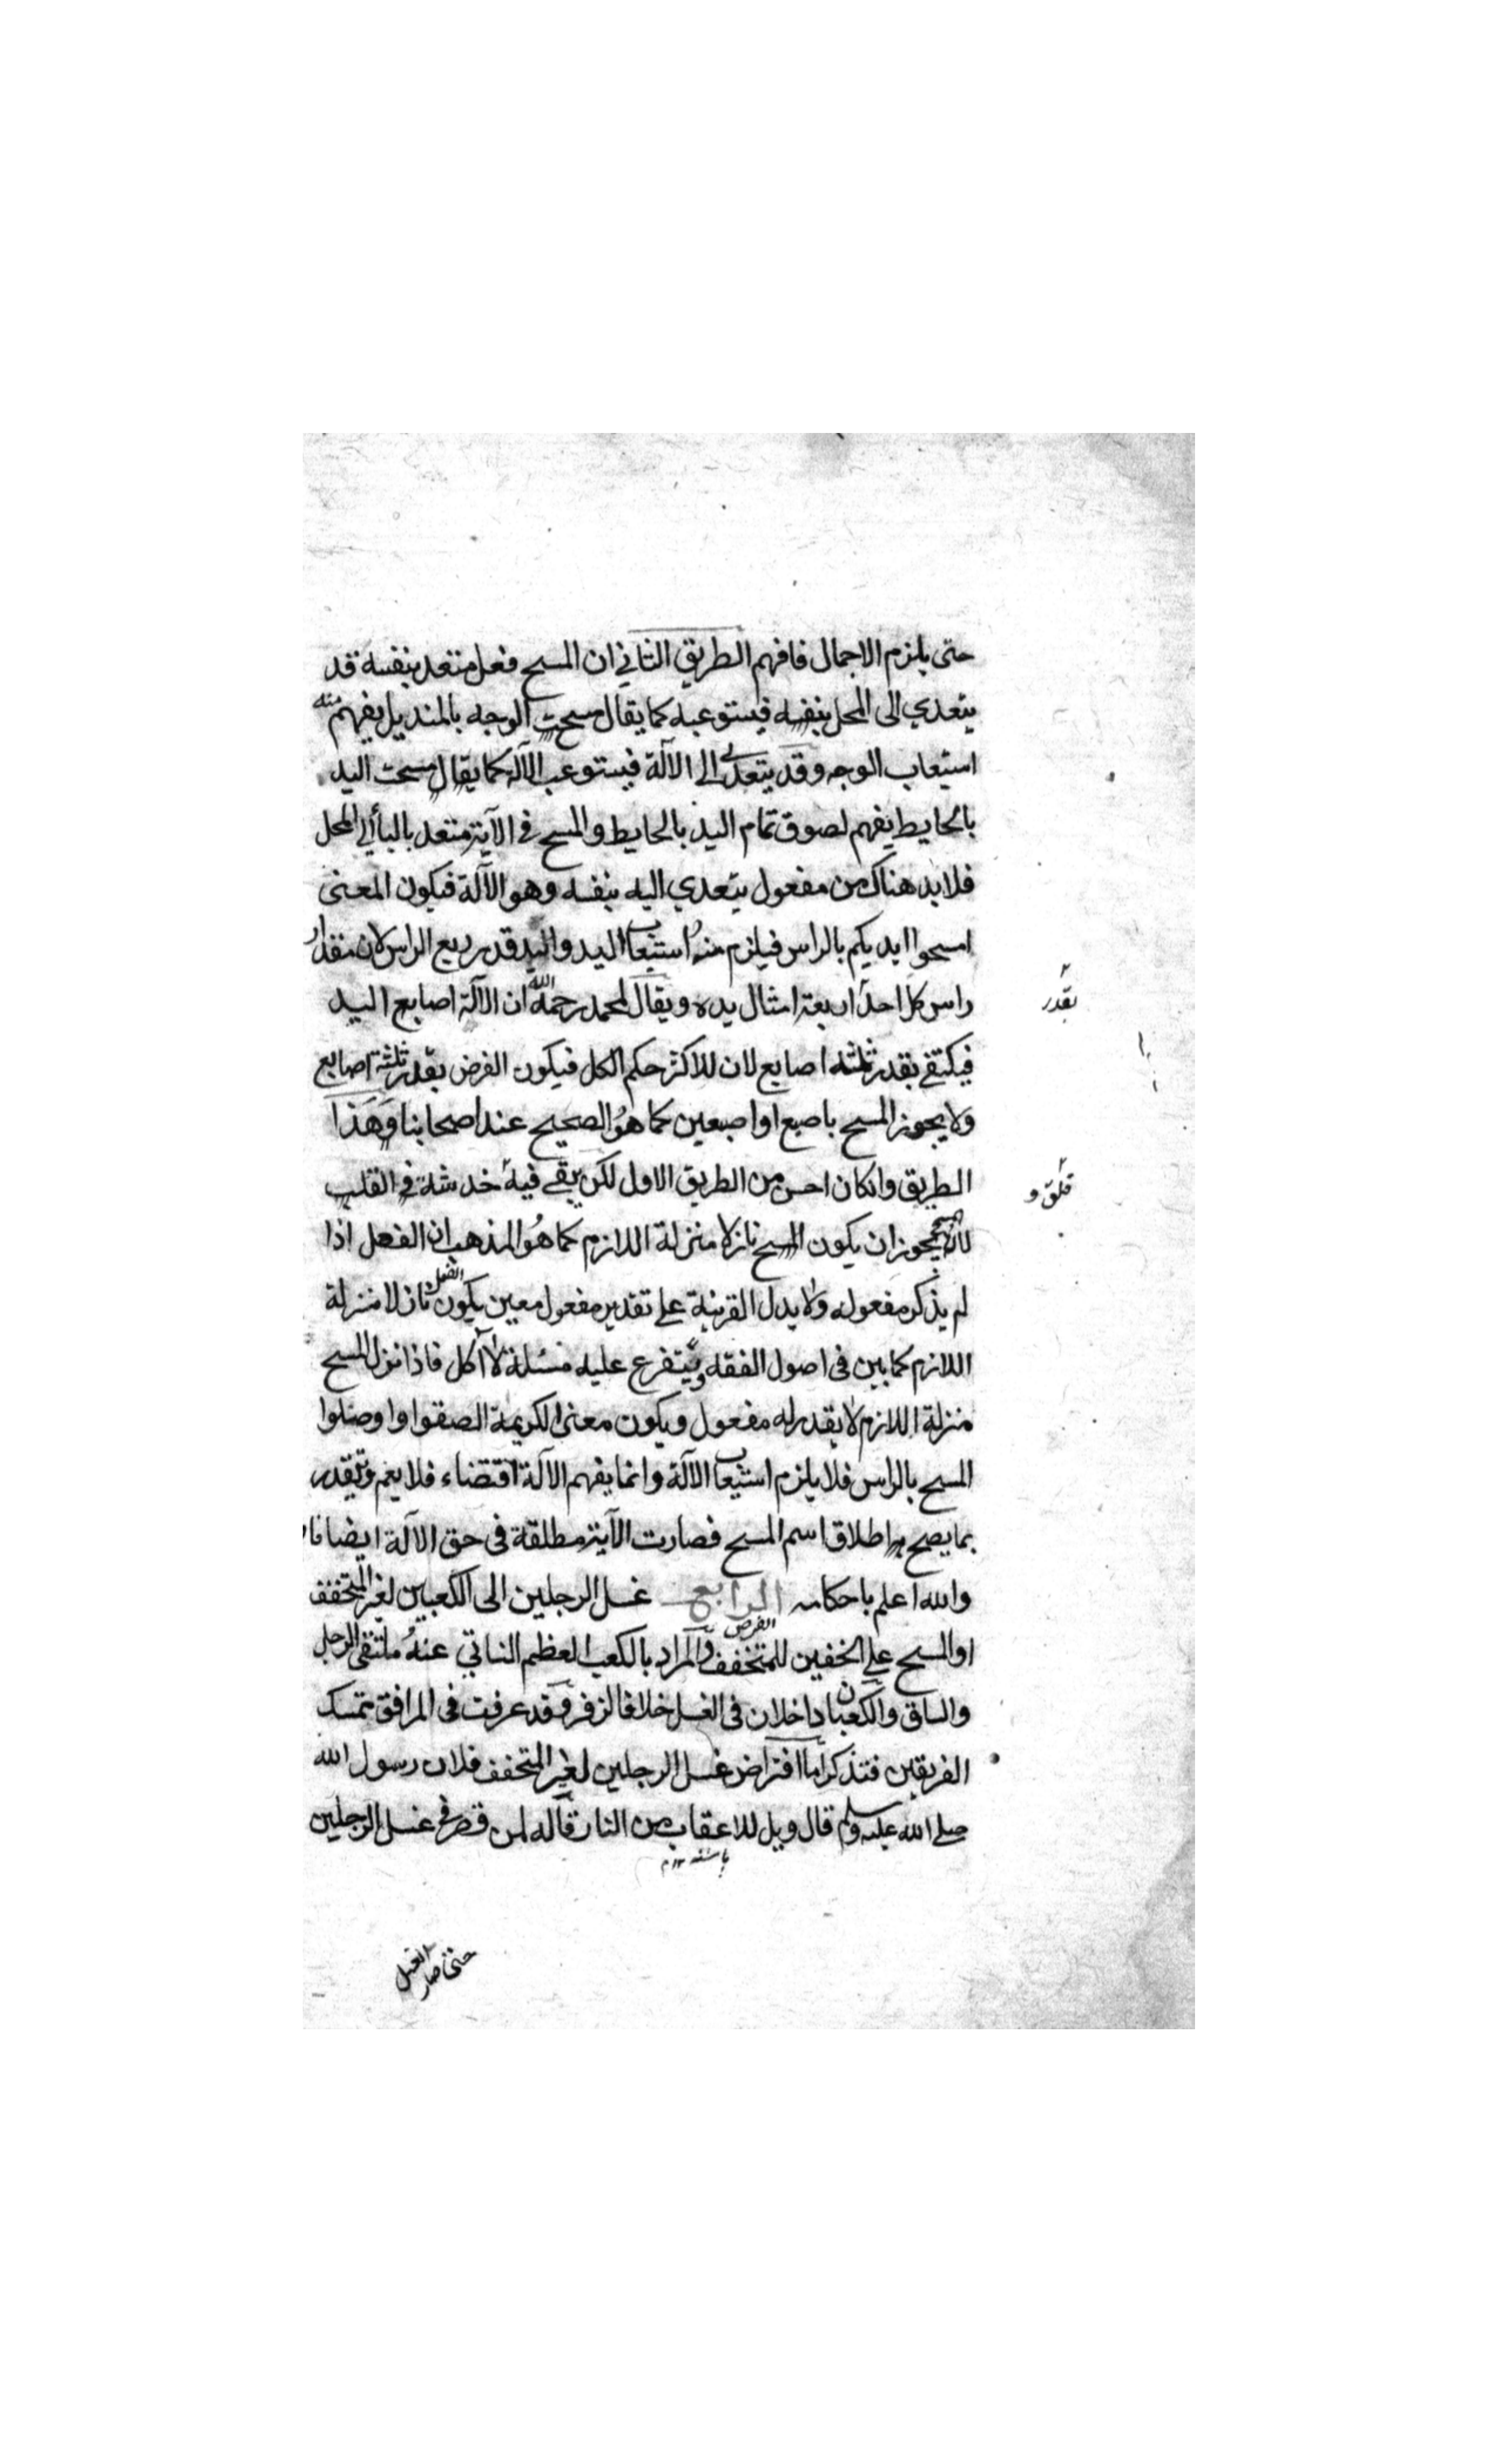 حتى يلزم الاجمال فافهم الطريق الثاني ان المسح فعل متعد بنفسه قد
يتعدي الى المحل بنفسه فيستوعبه كما يقال مسحت الوجه بالمنديل يفهم منه
استيعاب الوجه وقد يتعدى الى الآلة فيستوعب الآلة كما يقال مسحت اليد
بالحايط يفهم لصوق تمام اليد بالحايط والمسح في الآية متعد بالبأ الى المحل
فلا بد هناك من مفعول يتعدي اليه بنفسه وهو الآلة فيكون المعنى
امسحوا ايديكم بالراس فيلزم منه استيعاب اليد واليد قدر ربع الراس لان مقدار
راس كل احد اربعة امثال يده ويقال لمحمد رحمه الله ان الآلة اصابع اليد
بقدر
فيكتفى بقدر ثلثة اصابع لان للاكثر حكم الكل فيكون الفرض بقدر ثلثة اصابع
ولا يجوز المسح باصبع او اصبعين كما هو الصحيح عند اصحابنا وهذا
الطريق وانكان احسن من الطريق الاول لكن يبقى فيه خدشة في القلب
قلق و
لانه يجوز ان يكون المسح نازلا منزلة اللازم كما هو المذهب ان الفعل اذا
لم يذكر مفعوله ولا يدل القرينة على تقدير مفعول معين يكون الفعل نازلا منزلة
اللازم كما بين فى اصول الفقه ويتفرع عليه مسئلة لا آكل فاذا نزل المسح
منزلة اللازم لا يقدر له مفعول ويكون معنى الكريمة الصقوا واوصلوا
المسح بالراس فلا يلزم استيعاب الآلة وانما يفهم الآلة اقتضاء فلا يعم ويقدر
بما يصح به اطلاق اسم المسح فصارت الآية مطلقة فى حق الآلة ايضا
والله اعلم باحكامه الرابع غسل الرجلين الى الكعبين لغير المتخفف
او المسح على الخفين للمتخفف الفرض والمراد بالكعب العظم الناتي عند ملتقى الرجل
والساق والكعبان داخلان فى الغسل خلافا لزفر وقد عرفت فى المرافق تمسك
الفريقين فتذكر اما افتراض غسل الرجلين لغير المتخفف فلان رسول الله
صلى الله عليه وسلم قال ويل للاعقاب من النار قاله لمن قصر في غسل الرجلين